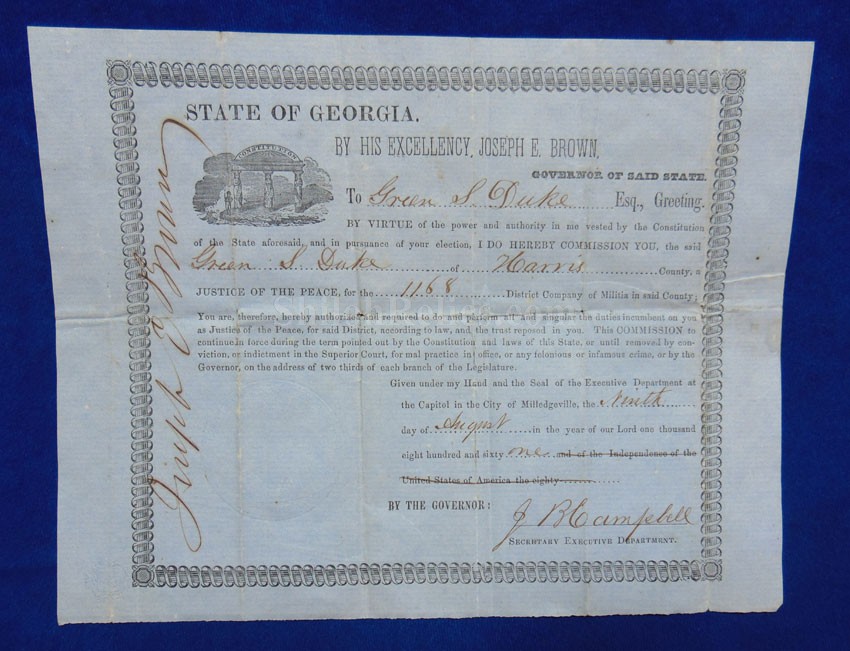 STATE OF GEORGIA.
CONSTITUTION
BY HIS EXCELLENCY, JOSEPH E. BROWN,
GOVERNOR OF SAID STATE.
To Green S. Duke Esq., Greeting.
BY VIRTUE of the power and authority in me vested by the Constitution
of the State aforesaid, and in pursuance of your election, I DO HEREBY COMMISSION YOU, the said
Green S. Duke of Harris County, a
JUSTICE OF THE PEACE, for the 1168 District Company of Militia in said County;
You are, therefore, hereby authorized and required to do and perform all and singular the duties incumbent on you
as Justice of the Peace, for said District, according to law, and the trust reposed in you. This COMMISSION to
continue in force during the term pointed out by the Constitution and laws of this State, or until removed by con-
viction, or indictment in the Superior Court, for mal practice in office, or any felonious or infamous crime, or by the
Governor, on the address of two thirds of each branch of the Legislature.
Given under my Hand and the Seal of the Executive Department at
the Capitol in the City of Milledgeville, the Ninth
day of August in the year of our Lord one thousand
eight hundred and sixty one and of the Independence of the
United States of America the eighty
BY THE GOVERNOR:
J B Campbell
SECRETARY EXECUTIVE DEPARTMENT.
Joseph E Brown